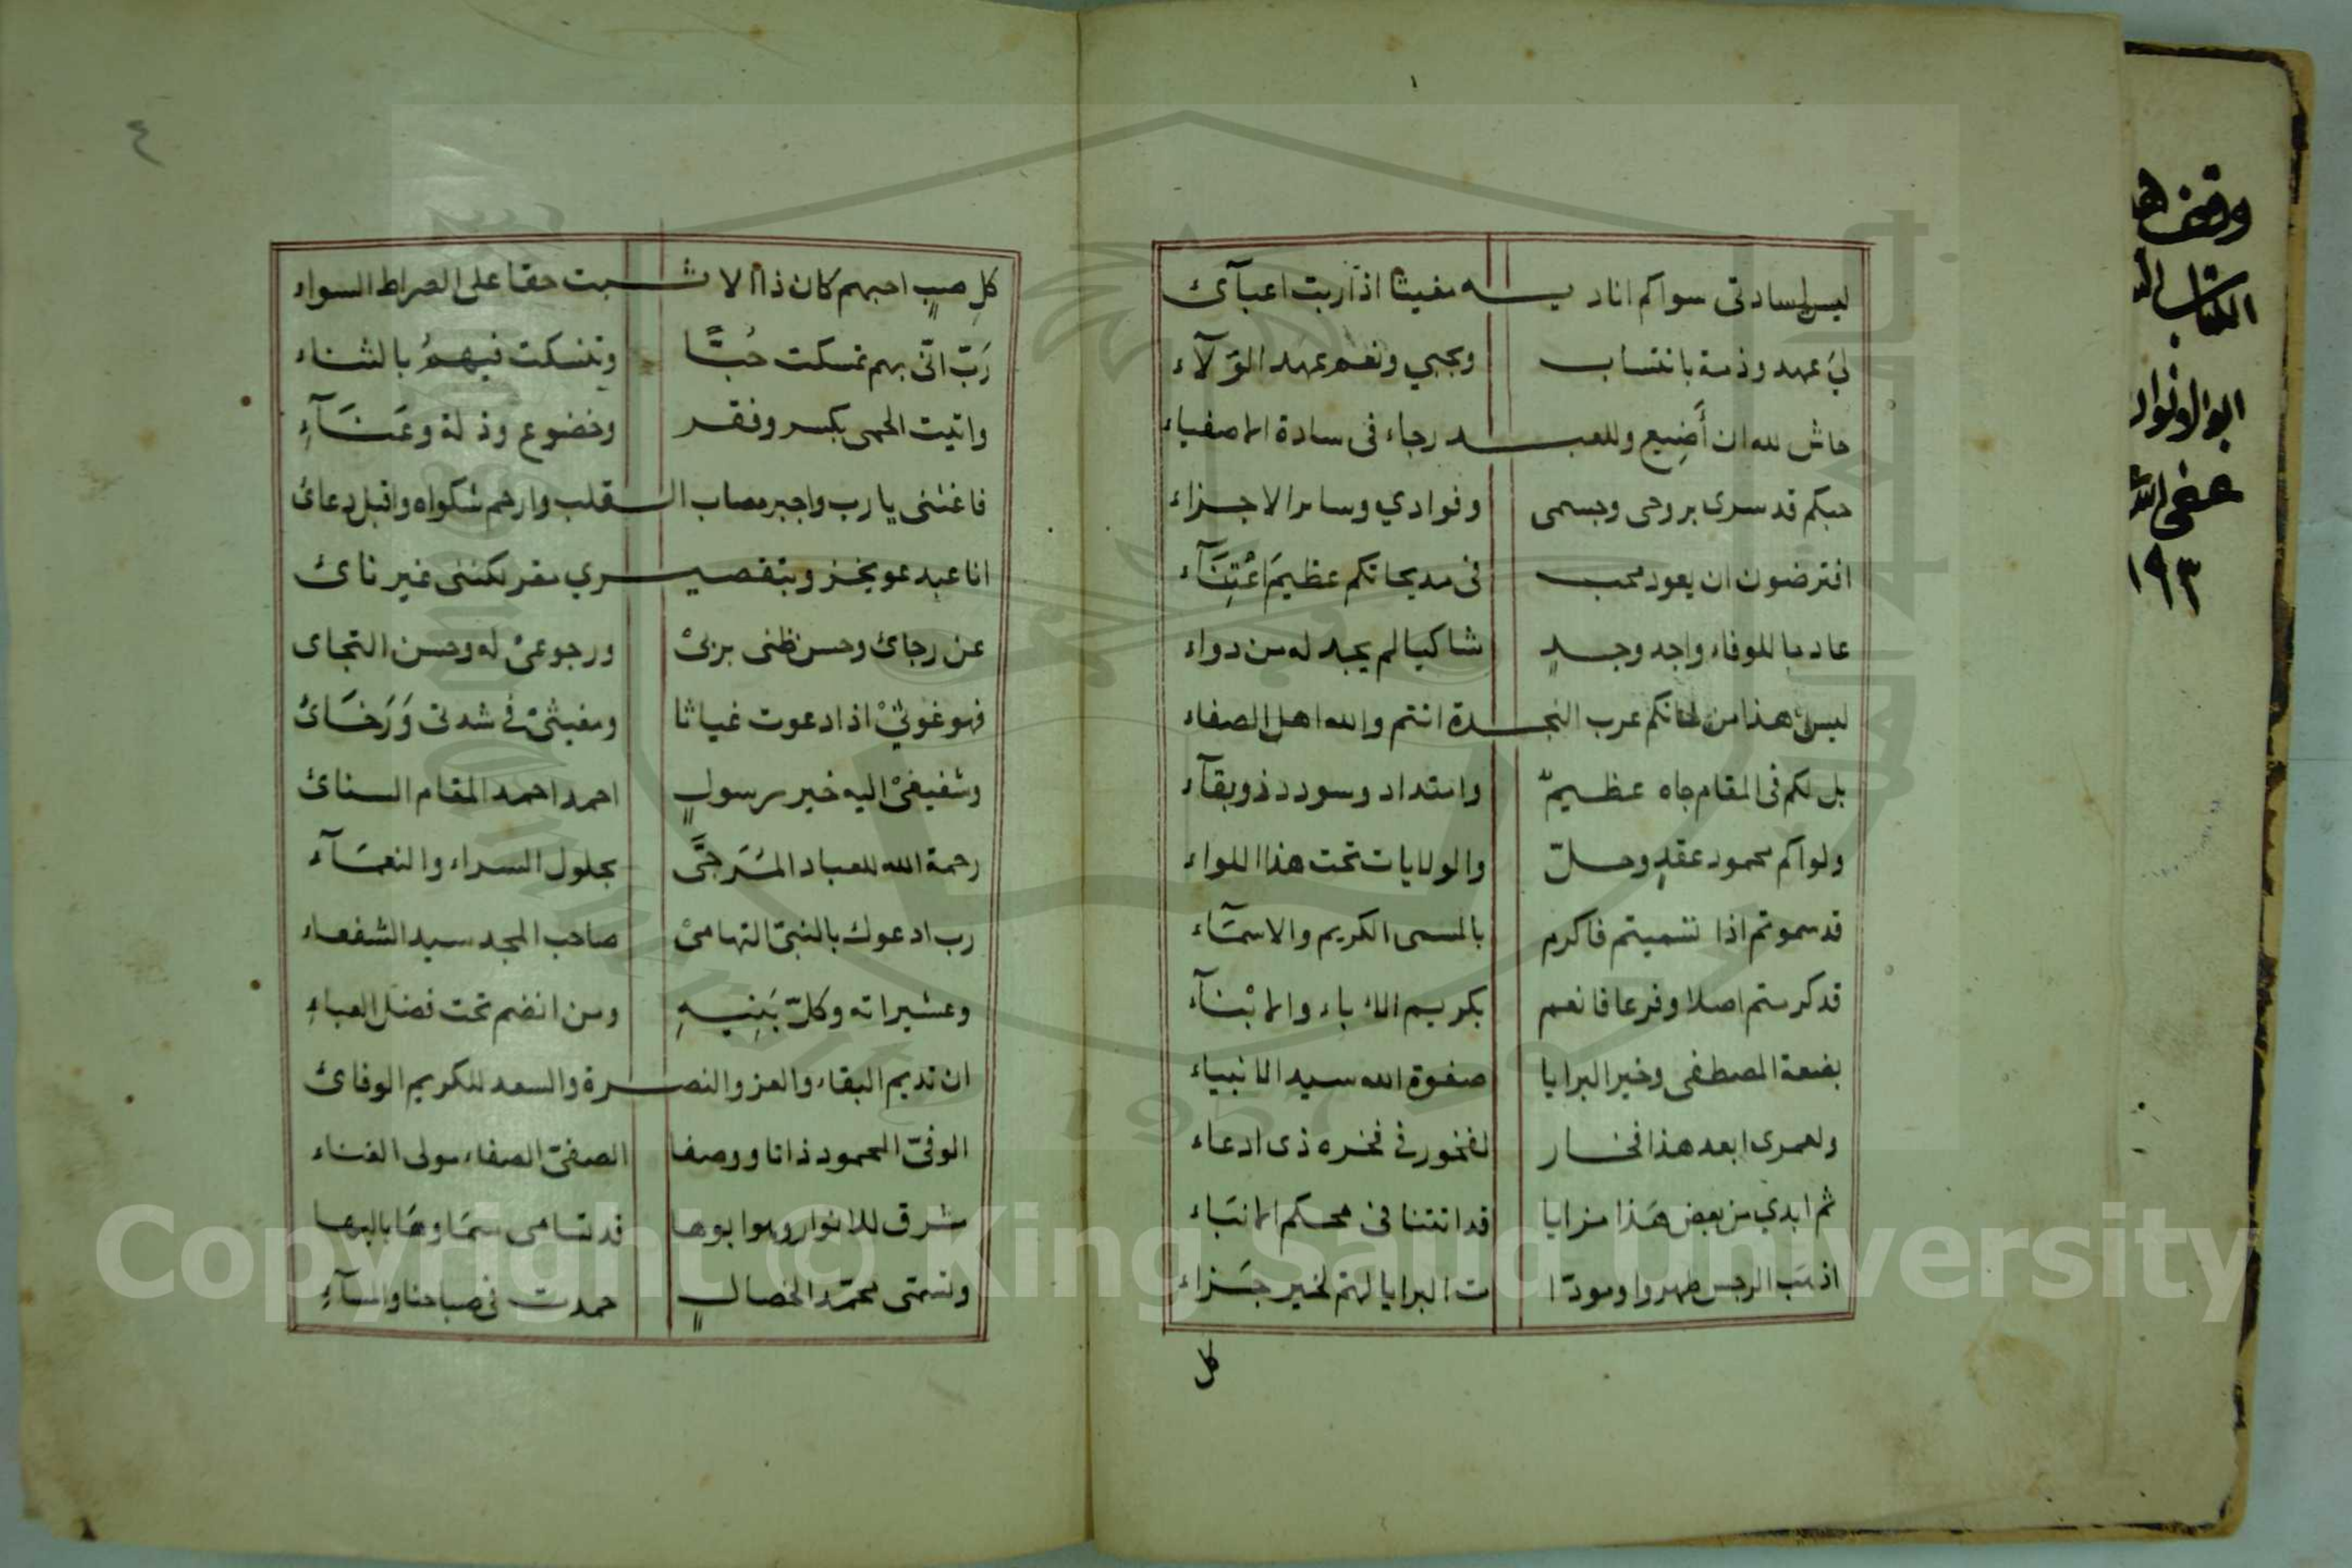 ليس لسادتى سواكم اناديـــه مغيثا اذا اربت اعبآئ
لي عهد وذمة بانتساب وبحبي ونعم عهد الولآء
حاش لله ان أضيع وللعبـــد رجاء فى سادة الاصفياء
حبكم قد سرى بروحى وجسمى وفوادي وسائر الاجزاء
افترضون ان يعود محب فى مديحاتكم عظيم اعتنآء
عادما للوفاء واجد وجدٍ شاكيا لم يجد له من دواء
ليس هذا من شانكم عرب النجـــدة انتم والله اهل الصفاء
بل لكم فى المقام جاه عظيم وامتداد وسودد ذو بقآء
ولواكم محمود عقدٍ وحلّ والولايات تحت هذا اللواء
قد سموتم اذا تسميتم فاكرم بالمسمى الكريم والاسمآء
قد كرمتم اصلا وفرعا فانعم بكريم الاباء والابنآء
بضعة المصطفى وخير البرايا صفوة الله سيد الانبياء
ولعمرى ابعد هذا فخار لفخور في فخره ذى ادعاء
ثم ابدي من بعض هذا مزايا قد اتتنا فى محكم الانباء
اذهب الرجس طهروا ومودا ت البرايا لهم لخير جزاء
كل
٤
كلِ صبٍ احبهم كان ذا الا ثـــبت حقا على الصراط السواء
رَبّ انّى بهم تمسكت حُبًّا وتنسكت فيهمُ بالثناء
واتيت الحمى بكسر وفقر وخضوع وذلة وعَنَآءِ
فاغثنى يا رب واجبر مصاب الـــقلب وارحم شكواه واقبل دعائ
انا عبد عويجز وبتقصيـــري مقر لكننى غير نائ
عن رجائ وحسن ظنى بربىْ ورجوعىْ له وحسن التجاى
فهو غوثيْ اذا دعوت غياثا ومغيثىْ في شدتى وَرَخَائ
وشفيعىْ اليه خير رسولٍ احمد احمد المقام السنائ
رحمة الله للعباد المُرَجَّى بحلول السراء والنعمآء
رب ادعوك بالنبىّ التهامىْ صاحب المجد سيد الشفعاء
وعشيراته وكلّ بَنِيهِ ومن انضم تحت فضل العباءِ
ان تديم البقاء والعز والنصـــرة والسعد للكريم الوفائ
الوفىّ المحمود ذاتا ووصفا الصفىّ الصفاء مولى الغناء
مشرق للانوار وهو ابوها قد تسامى سمَاوهَا بالبهاء
وتسمّى محمّد الخصالٍ حمدت فى صباحنا والمسآءِ
وقف هـ
الكتاب
ابو الانوار
عفى الله
١٩٣
Copyright © King Saud University